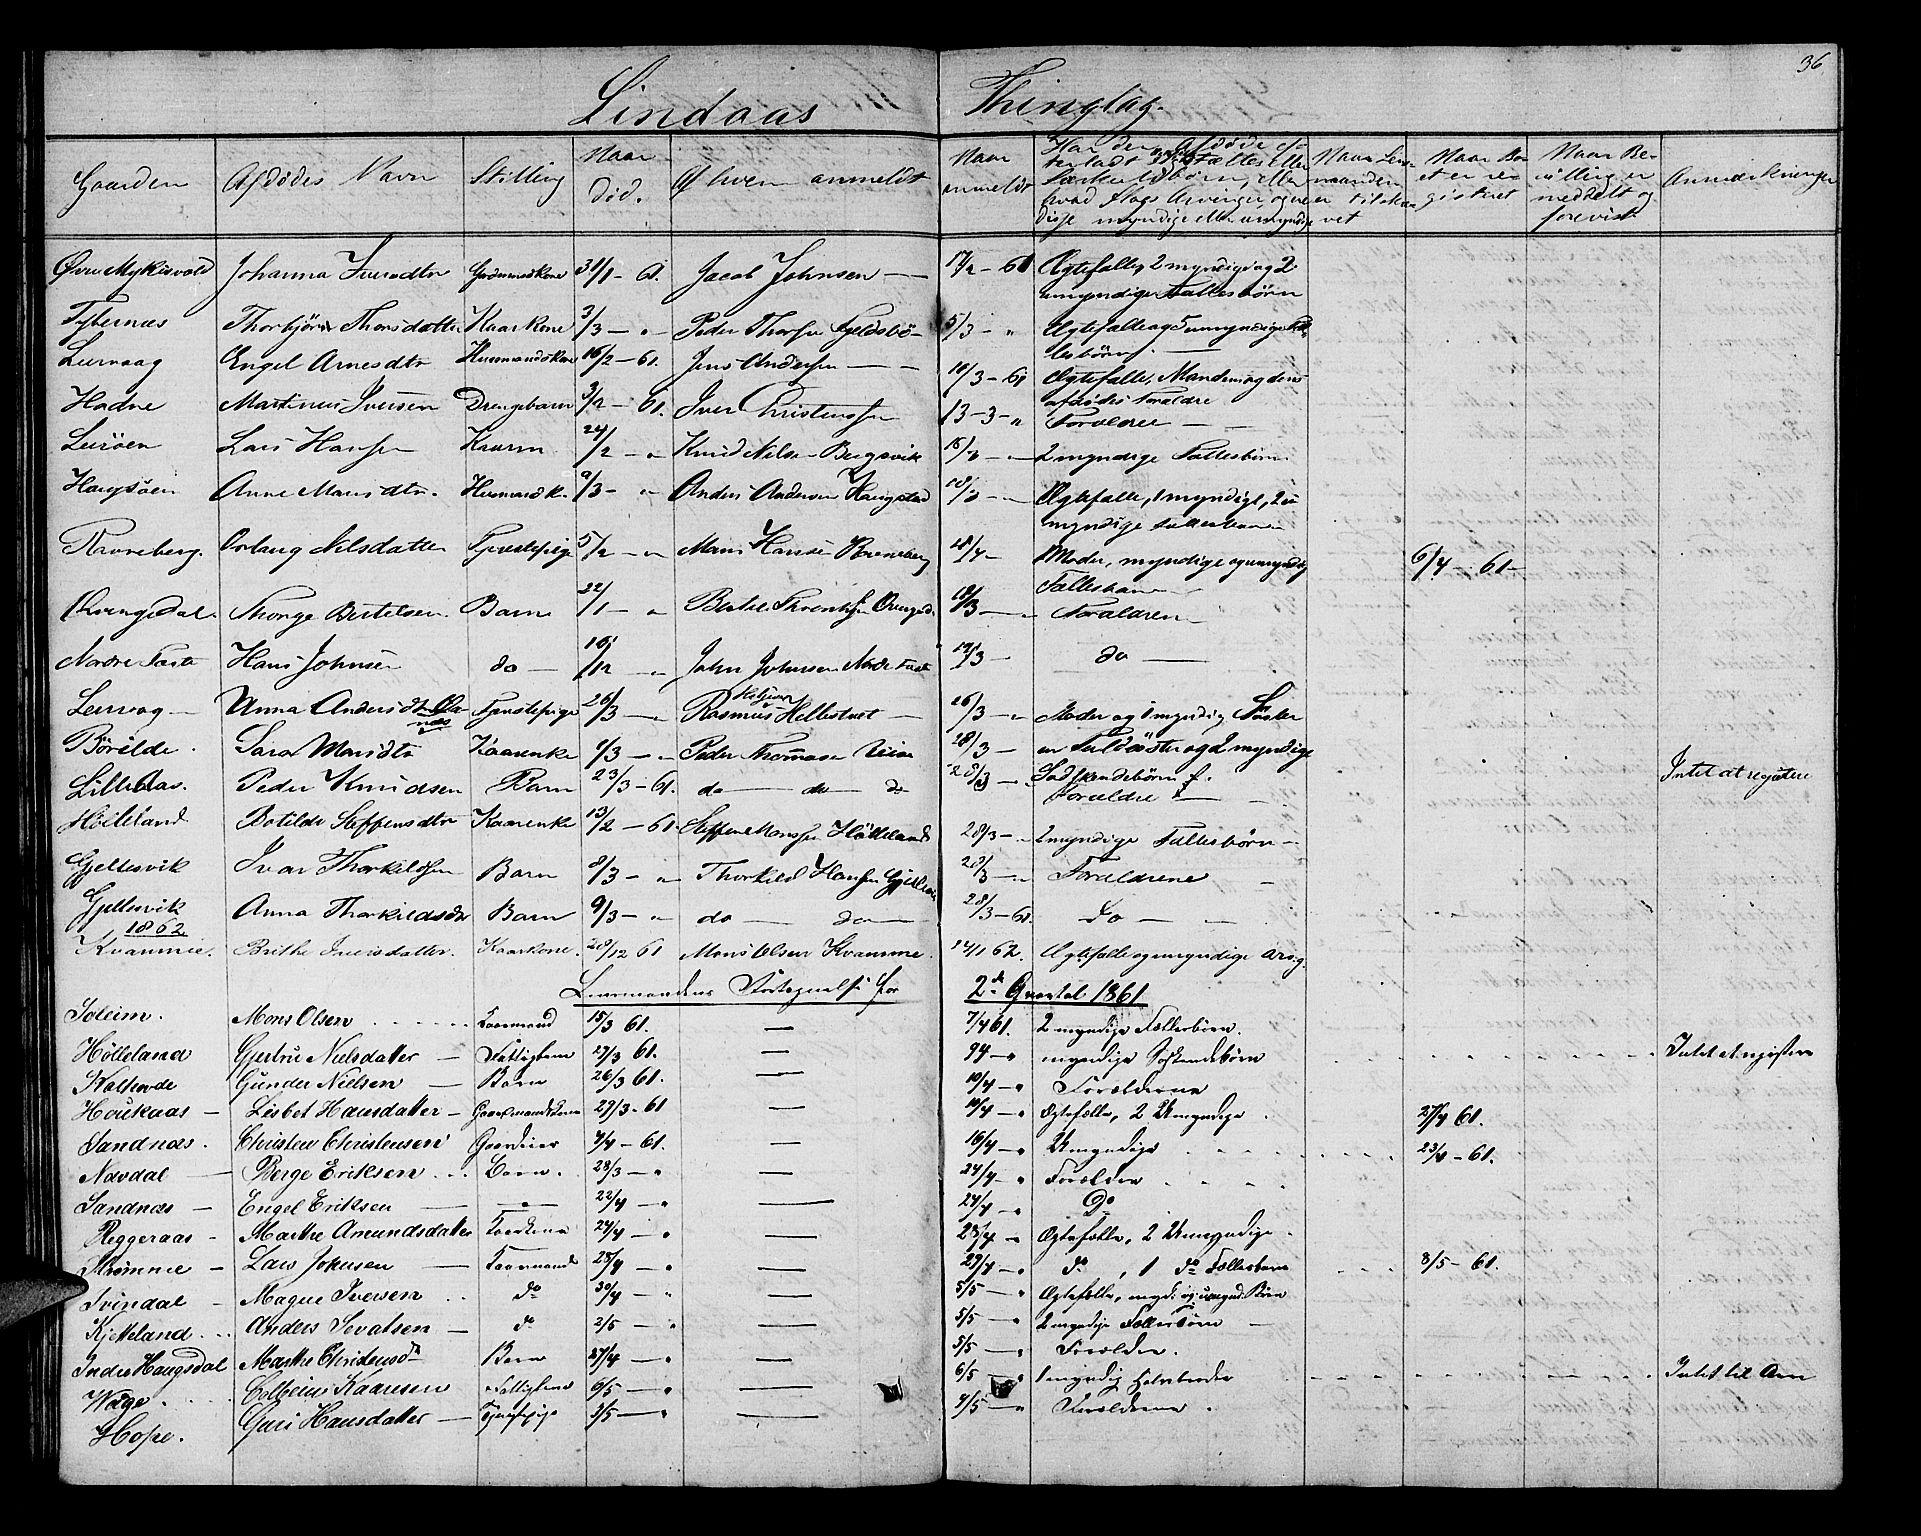 36
Lindaas Thinglag.
Gaarden Afdødes Navn Stilling Naar død. Af hvem anmeldt Naar anmeldt Har den Afdøde efterladt Ægtefælle eller Særkuldbørn, eller hvad Slags Arvinger, og ere disse myndige eller umyndige Naar Lensmanden er tilskrevet Naar Boet er registeret Naar Bevilling er meddelt og forevist Anmærkninger
Øvre Myksvold Johanna Iversdtr Gaardmandskone 31/1 - 61. Jacob Johnsen — 17/2 - 61 Ægtefælle, 2 myndige og 2
umyndige Fællesbörn
Fyllernæs Thorbjör Thorsdatter Kaarkone 3/3 — " Peder Thorsen Fjeldsbö - 5/3 - " Ægtefælle og 5 umyndige Fæl-
lesbörn. —
Leirvaag Engel Arnesdtr Husmandskone 16/2 - 61. Jens Andersen — 10/3 - 61 Ægtefælle, Manden og dens
afdödes Foraldre
Hodne Martinus Iversen Drengebarn 3/2 - 61. Iver Christensen 13 - 3 - " Foraldre —
Leiröen Lars Hansen Kaarm 24/2 - " Knud Nilsen Bergsvik 2 myndige Fællesbörn
Haugsöen Anne Monsdtr. Husmandsk. 9/3 - " Anders Andersen Haugstad Ægtefælle, 1 myndigt, 2 u-
myndige Fællesbörn
Ravneberg. Nilsdatter Tjenestepige 5/2 - " Mons Hansen 18/4 - Moder, myndige og umyndig 6/4 - 61 -
Fællesbarn
Thorge Bertelsen Barn 22/1 - " 18/3 - " Foraldren
Nordre Hans Johnsen do — 10/12 - " John Johnsen Nordre 19/3 - do —
Leirvag — Anna Andersdtr Tjenestepige 26/3 - " Rasmus Hellestvet — 26/3 - " Moder og 1 myndig Søster
Börilde. Sara Monsdtr Kaarenke 1/3 - " Peder Thomasen 28/3 - en Fuldsöster og 2 myndige
Lilleaas. Peder Knudsen Barn 23/3 - 61. do — do — do 28/3 - Fordældre — Intet at registere
Höiland Botilde Steffensdtr Kaarenke 13/2 - 61. Steffen Monssen Hölleland 28/3 - " 2 myndige Fællesbörn —
Gjellesvik Ivar Thorkildsen Barn 8/3 - " Thorkild Hansen 28/3 - " Foraldrene —
Gjellesvik Anna Thorkildsdtr Barn 9/3 - " do — do — 28/3 - 61. Do —
1862
Kvamme. Brithe Iversdatter. Kaarkone. 28/12 61 Mons Olsen Kvamme. 14/1 62. Ægtefælle og umyndige Arvg.
Lensmandens Fortegnelse for 2de Qvartal 1861
Soleim. Mons Olsen Kaarmand 15/3 61. — 7/4 61. 2 myndige Fællesbörn.
Hölleland Gjertrue Nielsdatter — Fattiglem 27/3 61. — 9/4 - " myndige Söskendebörn Intet at registere
Gunder Nielsen — Barn 26/3 61. — 10/4 - " Forældrene
Houkaas — Lisbet Hansdatter — Gaardmandskone 29/3 - 61 — 10/4 - " Ægtefælle, 2 Umyndige. 27/4 61.
Sandnæs. Christen Christensen Gaardeier 4/4 - 61. — 16/4 - " Umyndige 23/4 - 61.
Navdal — Berge Eriksen Barn. 28/3 - " — 24/4 - " Forældre
Sandnæs — Engel Eriksen — " — 22/4 - " — 24/4 - " Do
Reggeraas — Marthe Amundsdatter Kaarkone 24/4 - " — 28/4 - Ægtefælle, 2 Umyndige.
Lars Johnsen — Kaarmand 25/4 - " — 29/4 - " do, 1 do Fællesbarn 8/5 - 61.
Svindal — Magne Iversen do 30/4 - " — 5/5 - " Ægtefælle, mynd. og umynd. Börn
Kjetteland Anders Sevatsen — do 2/5 - " — 5/5 - " 2 myndige Fællesbörn —
Indre Haugsdal Marthe Christensd Barn 27/4 - " — 5/5 - " Forældre.
Waage Fattiglem 6/5 - " — 6/5 - " 1 myndig Halvbroder Intet til Arv
Hope. Guri Hansdatter — Tjenstepige 3/5 - " — 7/5 - " Forældrene.